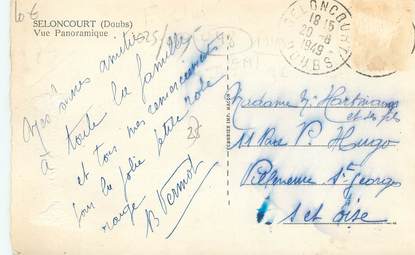 10 €
SELONCOURT (Doubs)
Vue Panoramique
SELONCOURT
18 15
20 -8
1949
DOUBS
Mes bonnes amitiés
à toute la famille
et tous mes remerciements
pour la jolie petite robe
rouge
B Vermot
28
Madame Hartmann
et ses fils
11 Rue V. Hugo
Villeneuve St Georges
S et Oise